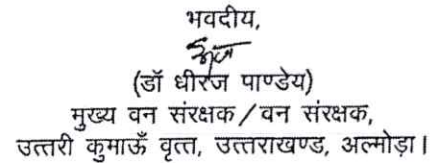 भवदीय,
(डॉ धीरज पाण्डेय)
मुख्य वन संरक्षक/वन संरक्षक,
उत्तरी कुमाऊँ वृत्त, उत्तराखण्ड, अल्मोड़ा।